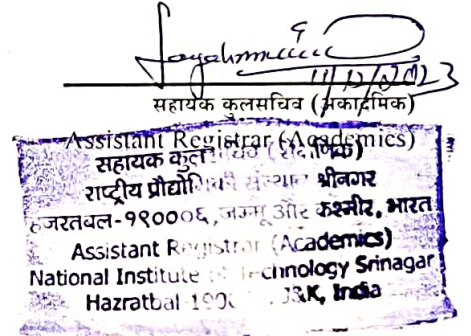 11/12/2023
सहायक कुलसचिव (अकादमिक)
Assistant Registrar (Academics)
सहायक कुल
राष्ट्रीय प्रौद्योगिकी संस्थान श्रीनगर
हजरतबल-१९०००६, जम्मू और कश्मीर, भारत
Assistant Registrar (Academics)
National Institute of Technology Srinagar
Hazratbal J&K, India